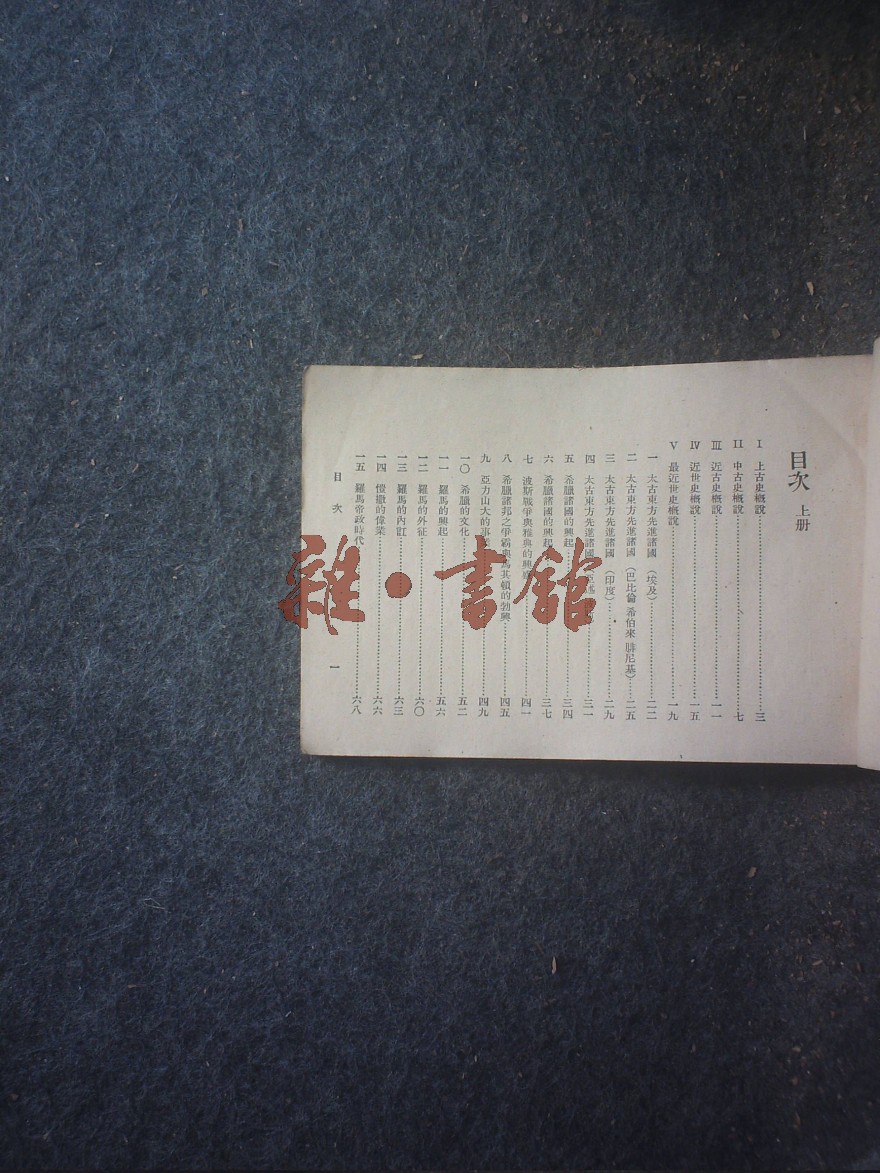 目次 上册
I 上古史概說……三
II 中古史概說……七
III 近古史概說……一一
IV 近世史概說……一五
V 最近世史概說……一九
一 太古東方先進諸國（埃及）……二二
二 太古東方先進諸國（巴比倫 希伯來 腓尼基）……二五
三 太古東方先進諸國（印度）……二九
四 太古東方先進諸國……三一
五 希臘諸國的興起……三四
六 希臘諸國的興起……三七
七 波斯戰爭與雅典的興盛……四一
八 希臘諸邦之爭霸與馬其頓的勃興……四五
九 亞力山大的事……四九
一〇 希臘的文化……五二
一一 羅馬的興起……五六
一二 羅馬的外征……六〇
一三 羅馬的內訌……六三
一四 愷撒的偉業……六六
一五 羅馬帝政時代……六八
目次 一
雜·書館